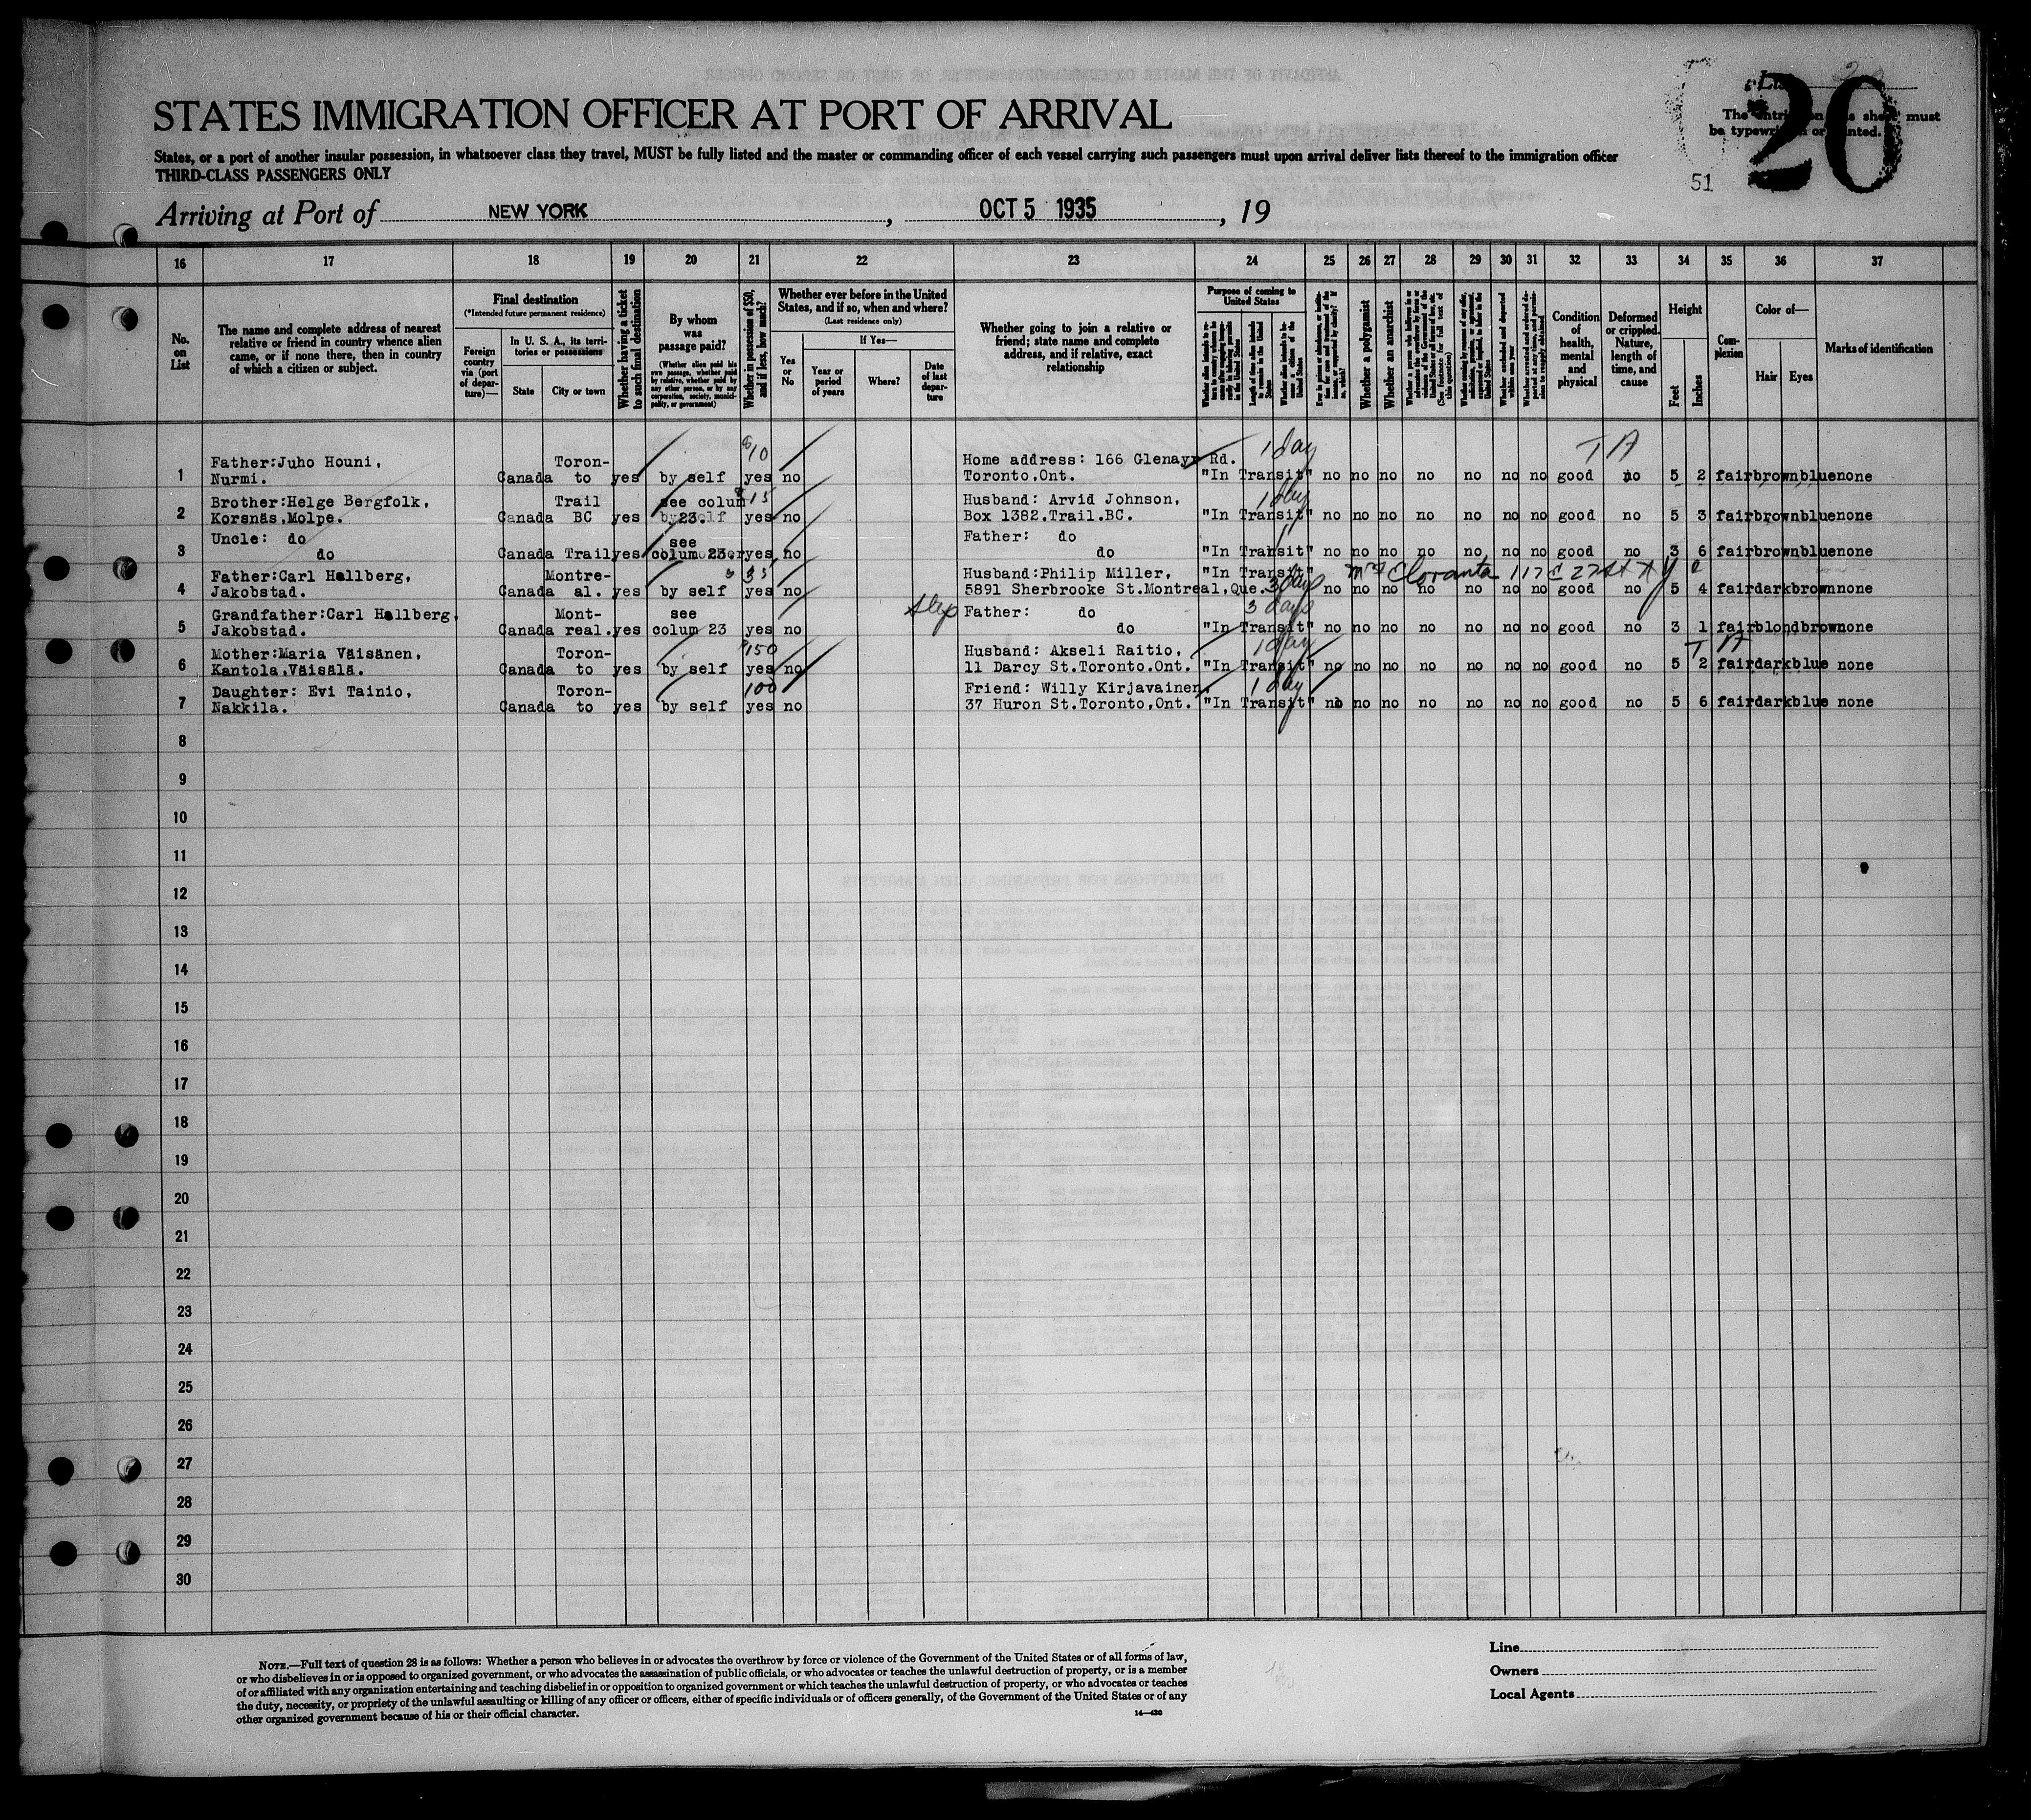 20
STATES IMMIGRATION OFFICER AT PORT OF ARRIVAL
The entries on this sheet must
be typewritten or printed.
States, or a port of another insular possession, in whatsoever class they travel, MUST be fully listed and the master or commanding officer of each vessel carrying such passengers must upon arrival deliver lists thereof to the immigration officer
THIRD-CLASS PASSENGERS ONLY
51
Arriving at Port of NEW YORK, OCT 5 1935, 19
16 17 18 19 20 21 22 23 24 25 26 27 28 29 30 31 32 33 34 35 36 37
No. on List
The name and complete address of nearest relative or friend in country whence alien came, or if none there, then in country of which a citizen or subject.
Final destination
(*Intended future permanent residence)
Foreign country via (port of departure)—
In U. S. A., its territories or possessions
State
City or town
Whether having a ticket to such final destination
By whom was passage paid?
(Whether alien paid his own passage, whether paid by relative, whether paid by any other person, or by any corporation, society, municipality, or government)
Whether in possession of $50, and if less, how much?
Whether ever before in the United States, and if so, when and where?
(Last residence only)
Yes or No
If Yes—
Year or period of years
Where?
Date of last departure
Whether going to join a relative or friend; state name and complete address, and if relative, exact relationship
Purpose of coming to United States
Length of time alien intends to remain in the United States
Whether alien intends to become a citizen of the United States
Whether a polygamist
Whether an anarchist
Condition of health, mental and physical
Deformed or crippled. Nature, length of time, and cause
Height
Feet
Inches
Complexion
Color of—
Hair
Eyes
Marks of identification
$10 1 day T A
1 Father:Juho Houni, Toron- Home address: 166 Glenayr Rd.
Nurmi. Canada to yes by self yes no Toronto,Ont. "In Transit" no no no no no no no good no 5 2 fair brown blue none
15 1 day
2 Brother:Helge Bergfolk, Trail see colum Husband: Arvid Johnson,
Korsnäs,Molpe. Canada BC yes 23. yes no Box 1382.Trail.BC. "In Transit" no no no no no no no good no 5 3 fair brown blue none
3 Uncle: do see Father: do
do Canada Trail yes colum 23, yes no do "In Transit" no no no no no no no good no 3 6 fair brown blue none
35 3 days 117 E 27 St N Y C
4 Father:Carl Hallberg, Montre- Husband:Philip Miller, "In Transit"
Jakobstad. Canada al. yes by self yes no 5891 Sherbrooke St.Montreal,Que. no no no no no no no good no 5 4 fair dark brown none
3 days
5 Grandfather:Carl Hallberg, Mont- see Father: do
Jakobstad. Canada real. yes colum 23 yes no do "In Transit" no no no no no no no good no 3 1 fair blond brown none
$150 1 day T A
6 Mother:Maria Väisänen, Toron- Husband: Akseli Raitio,
Kantola,Väisälä. Canada to yes by self yes no 11 Darcy St.Toronto.Ont. "In Transit" no no no no no no no good no 5 2 fair dark blue none
100 1 day
7 Daughter: Evi Tainio, Toron- Friend: Willy Kirjavainen,
Nakkila. Canada to yes by self yes no 37 Huron St.Toronto,Ont. "In Transit" no no no no no no no good no 5 6 fair dark blue none
8
9
10
11
12
13
14
15
16
17
18
19
20
21
22
23
24
25
26
27
28
29
30
NOTE.—Full text of question 28 is as follows: Whether a person who believes in or advocates the overthrow by force or violence of the Government of the United States or of all forms of law,
or who disbelieves in or is opposed to organized government, or who advocates the assassination of public officials, or who advocates or teaches the unlawful destruction of property, or is a member
of or affiliated with any organization entertaining and teaching disbelief in or opposition to organized government or which teaches the unlawful destruction of property, or who advocates or teaches
the duty, necessity, or propriety of the unlawful assaulting or killing of any officer or officers, either of specific individuals or of officers generally, of the Government of the United States or of any
other organized government because of his or their official character.
14—430
Line
Owners
Local Agents